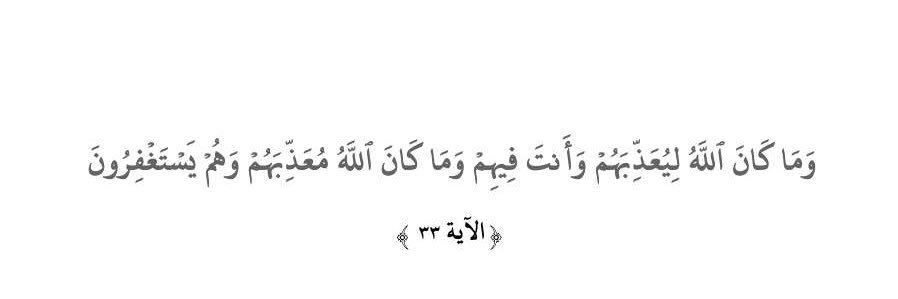 وَمَا كَانَ ٱللَّهُ لِيُعَذِّبَهُمۡ وَأَنتَ فِيهِمۡ وَمَا كَانَ ٱللَّهُ مُعَذِّبَهُمۡ وَهُمۡ يَسۡتَغۡفِرُونَ
﴿الآية ٣٣﴾